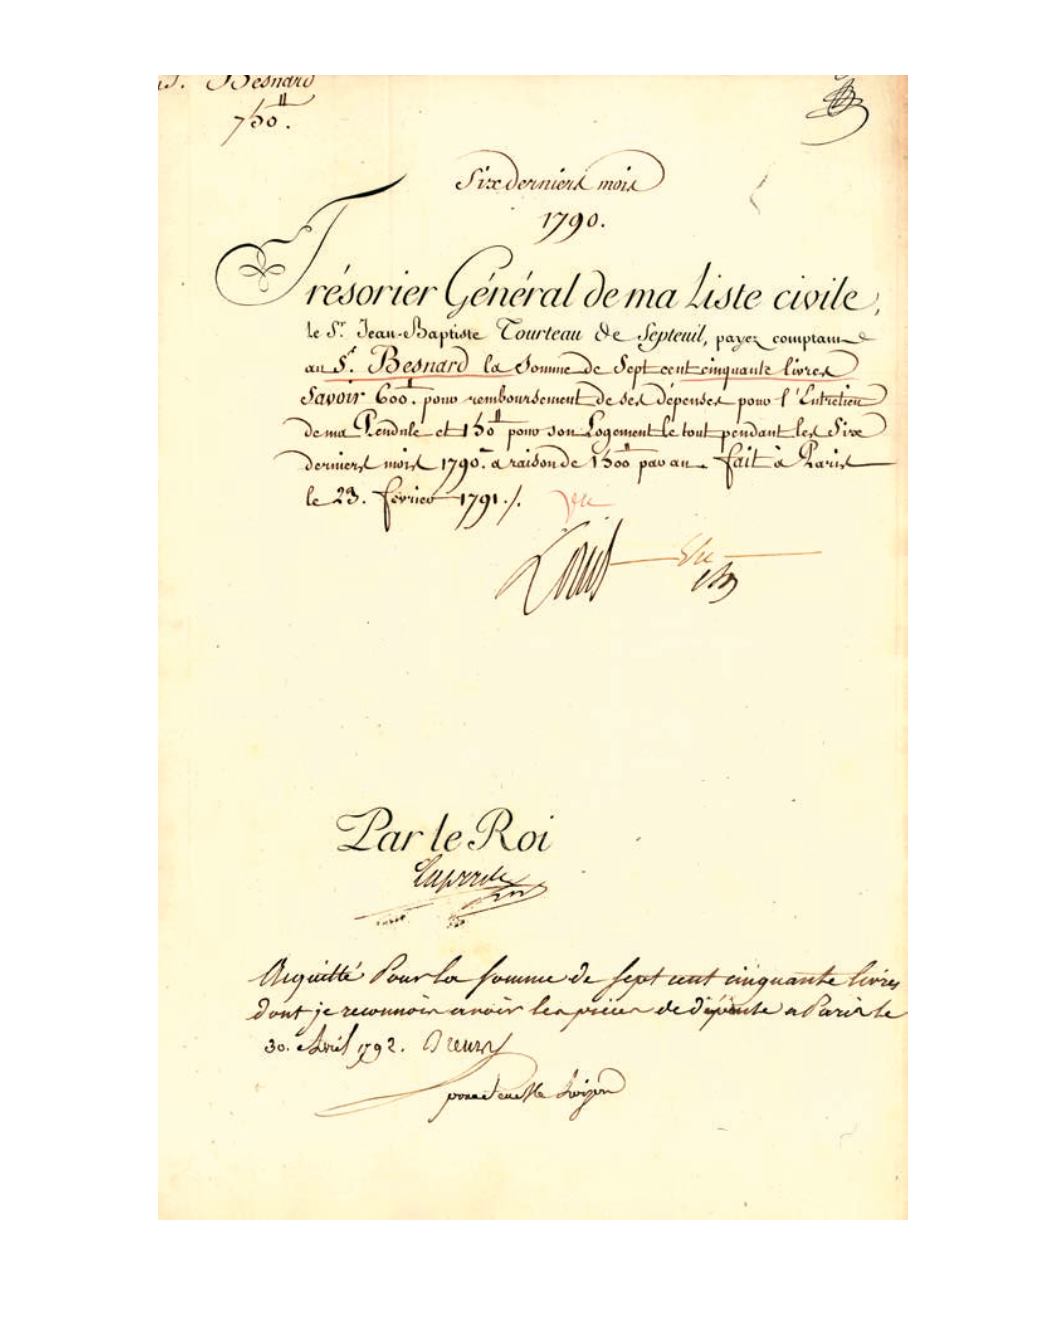 S. Besnard
750.tt
Six derniers mois
1790.
Trésorier Général de ma Liste civile,
le Sr. Jean-Baptiste Tourteau de Septeuil, payez comptant
au Sr. Besnard la Somme de Sept cent cinquante livres
Savoir 600tt. pour remboursement de ses dépenses pour l'Entretien
de ma Pendule et 150tt pour son Logement le tout pendant les Six
derniers mois 1790. a raison de 1500tt par an. fait à Paris
le 23. février 1791./.
Vu
Louis
Par le Roi
Laporte
Acquitté Pour la somme de sept cent cinquante livres
dont je reconnois avoir les pièces de dépense a Paris le
30. Avril 1792.